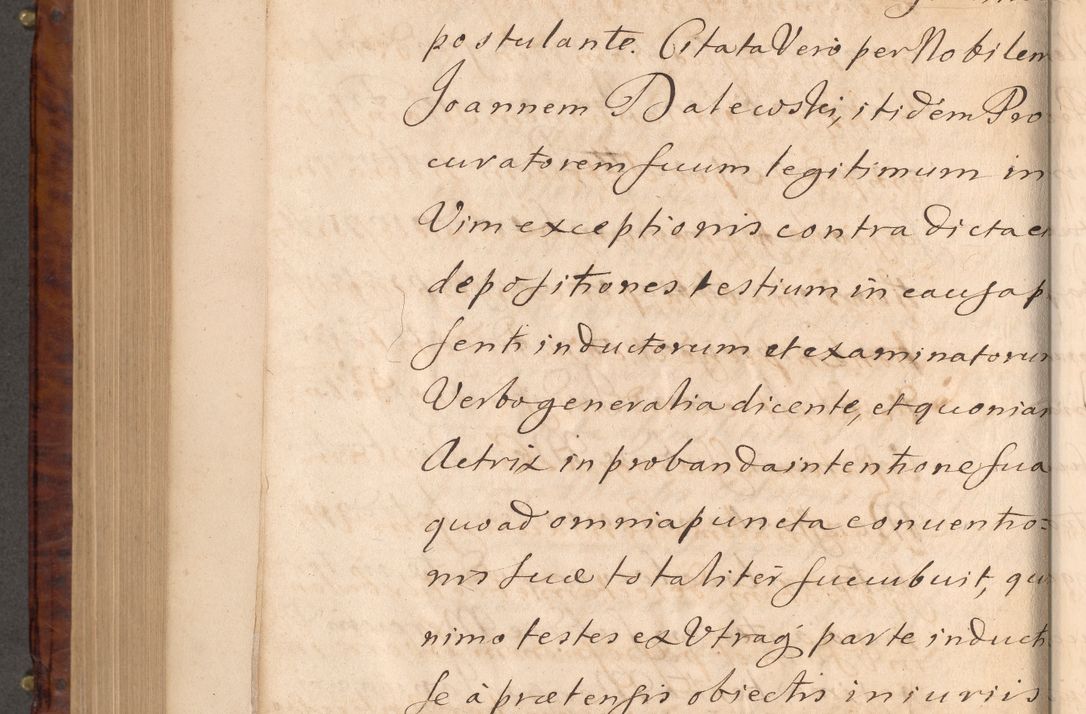 postulante. Citata Vero per Nobilem
Joannem Dalewski, itidem Pro
curatorem suum legitimum in
Vim exceptionis contra dicta e
depositiones testium in causa p
senti inductorum et examinatorum
Verbo generalia dicente, et quoniam
Actrix in probanda intentione sua
quoad omnia puncta conuentio=
nis suæ totaliter sucubuit, qu
nimo testes ex Utraq parte induct
se à prætensis obiectis iniuriis